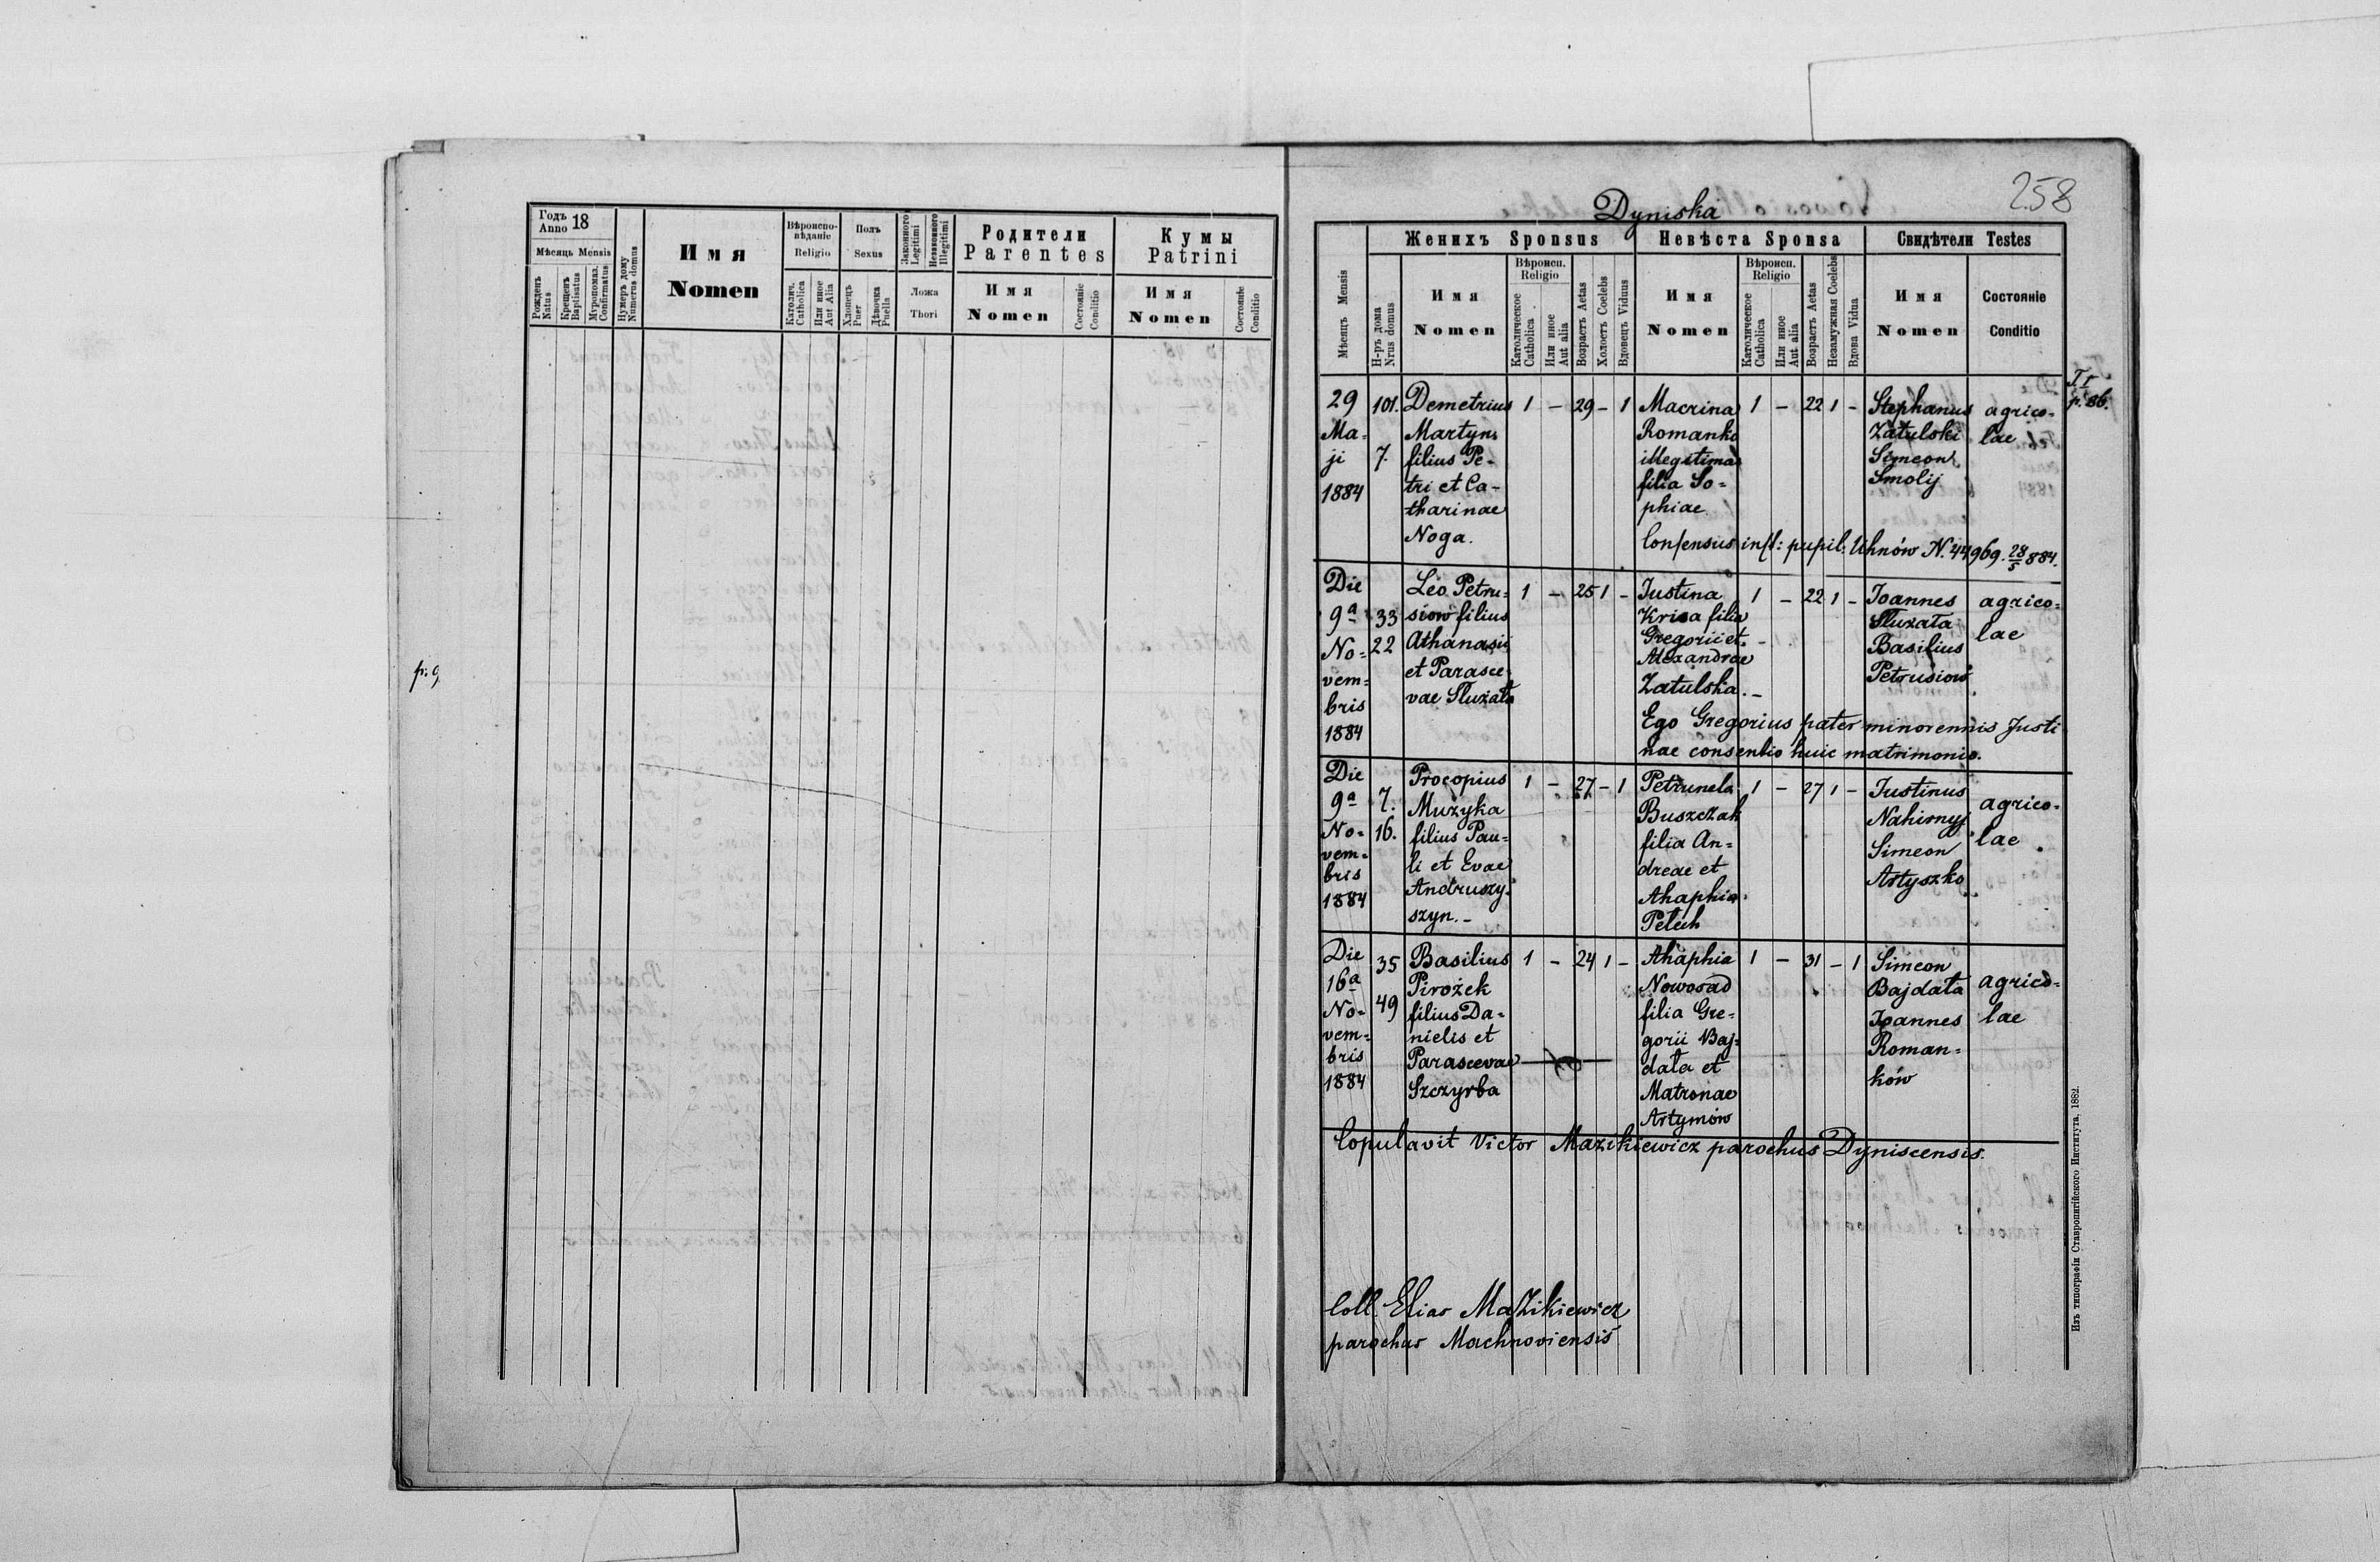 Годъ Anno 18
Мѣсяць Mensis
Рожденъ Natus
Крещенъ Baptisatus
Муропомаз. Confirmatus
Нумеръ дому Numerus domus
Имя
Nomen
Вѣроиспо-
вѣданіе
Religio
Католич. Catholica
Или иное Aut Alia
Полъ
Sexus
Хлопецъ Puer
Дѣвочка Puella
Законного Legitimi
Незаконного Illegitimi
Ложа
Thori
Родители
Parentes
Имя
Nomen
Состояніе Conditio
Кумы
Patrini
Имя
Nomen
Состояніе Conditio
p. 9
258
Dyniska
Мѣсяцъ Mensis
Н-ръ дома Nrus domus
Женихъ Sponsus
Имя
Nomen
Вѣроисп. Religio
Католическое Catholica
Или иное Aut alia
Возрастъ Aetas
Холостъ Coelebs
Вдовецъ Viduus
Невѣста Sponsa
Имя
Nomen
Вѣроисп. Religio
Католическое Catholica
Или иное Aut alia
Возрастъ Aetas
Незамужная Coelebs
Вдова Vidua
Свидѣтели Testes
Имя
Nomen
Состояніе
Conditio
T. I
p. 86.
29
Ma-
ji
1884
101.
7.
Demetrius
Martyn
filius Pe-
tri et Ca-
tharinae
Noga.
1 – 29 – 1
Macrina
Romanko
illegitima
filia So-
phiae
1 – 22 1 –
Stephanus
Zatulski
Simeon
Smolij
agrico-
lae
Consensus inst: pupil: Uhnów N. 44969. 28/5 884.
Die
9a
No-
vem-
bris
1884
33
22
Leo Petru-
siow filius
Athanasii
et Parasce-
vae Służała
1 – 25 1 –
Justina
Krisa filia
Gregorii et
Alexandrae
Zatulska. –
1 – 22 1 –
Joannes
Służała
Basilius
Petrusiow
agrico-
lae
Ego Gregorius pater minorennis Justi
nae consentio huic matrimonio.
Die
9a
No-
vem-
bris
1884
7.
16.
Procopius
Muzyka
filius Pau-
li et Evae
Andruszy-
szyn. –
1 – 27 – 1
Petrunela
Buszczak
filia An-
dreae et
Ahaphia
Pełech
1 – 27 1 –
Justinus
Nahirnyj
Simeon
Artyszko
agrico-
lae
Die
16a
No-
vem-
bris
1884
35
49
Basilius
Pirożek
filius Da-
nielis et
Parascevae
Szczyrba
1 – 24 1 –
Ahaphia
Nowosad
filia Gre-
gorii Baj-
data et
Matronae
Artymów
1 – 31 – 1
Simeon
Bajdata
Joannes
Roman-
ków
agrico-
lae
Copulavit Victor Mazikiewicz parochus Dyniscensis.
Coll. Elias Mazikiewicz
parochus Machnoviensis
Изъ типографіи Ставропигійского Института, 1882.